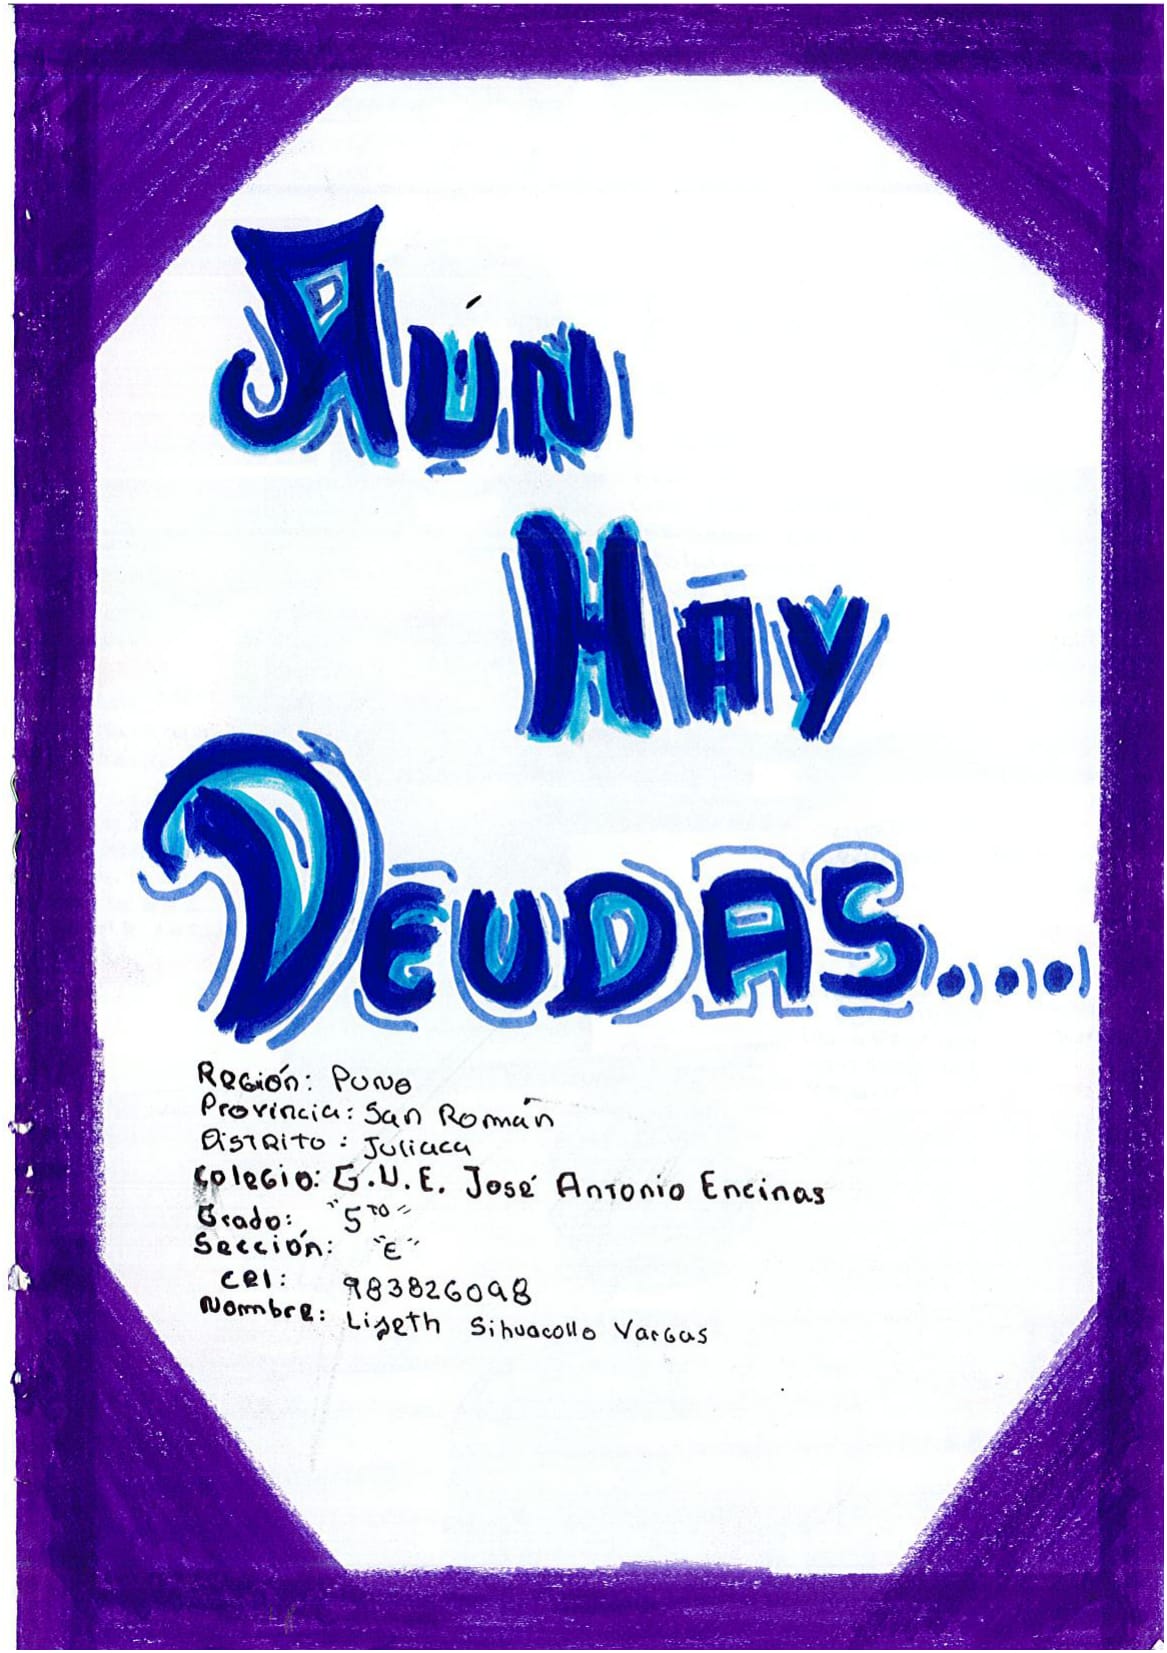 Aún
Hay
Deudas....
Región: Puno
Provincia: San Román
Distrito: Juliaca
Colegio: G.U.E. José Antonio Encinas
Grado: "5TO"
Sección: "E"
Cel: 983826098
Nombre: Lizeth Sihuacollo Vargas